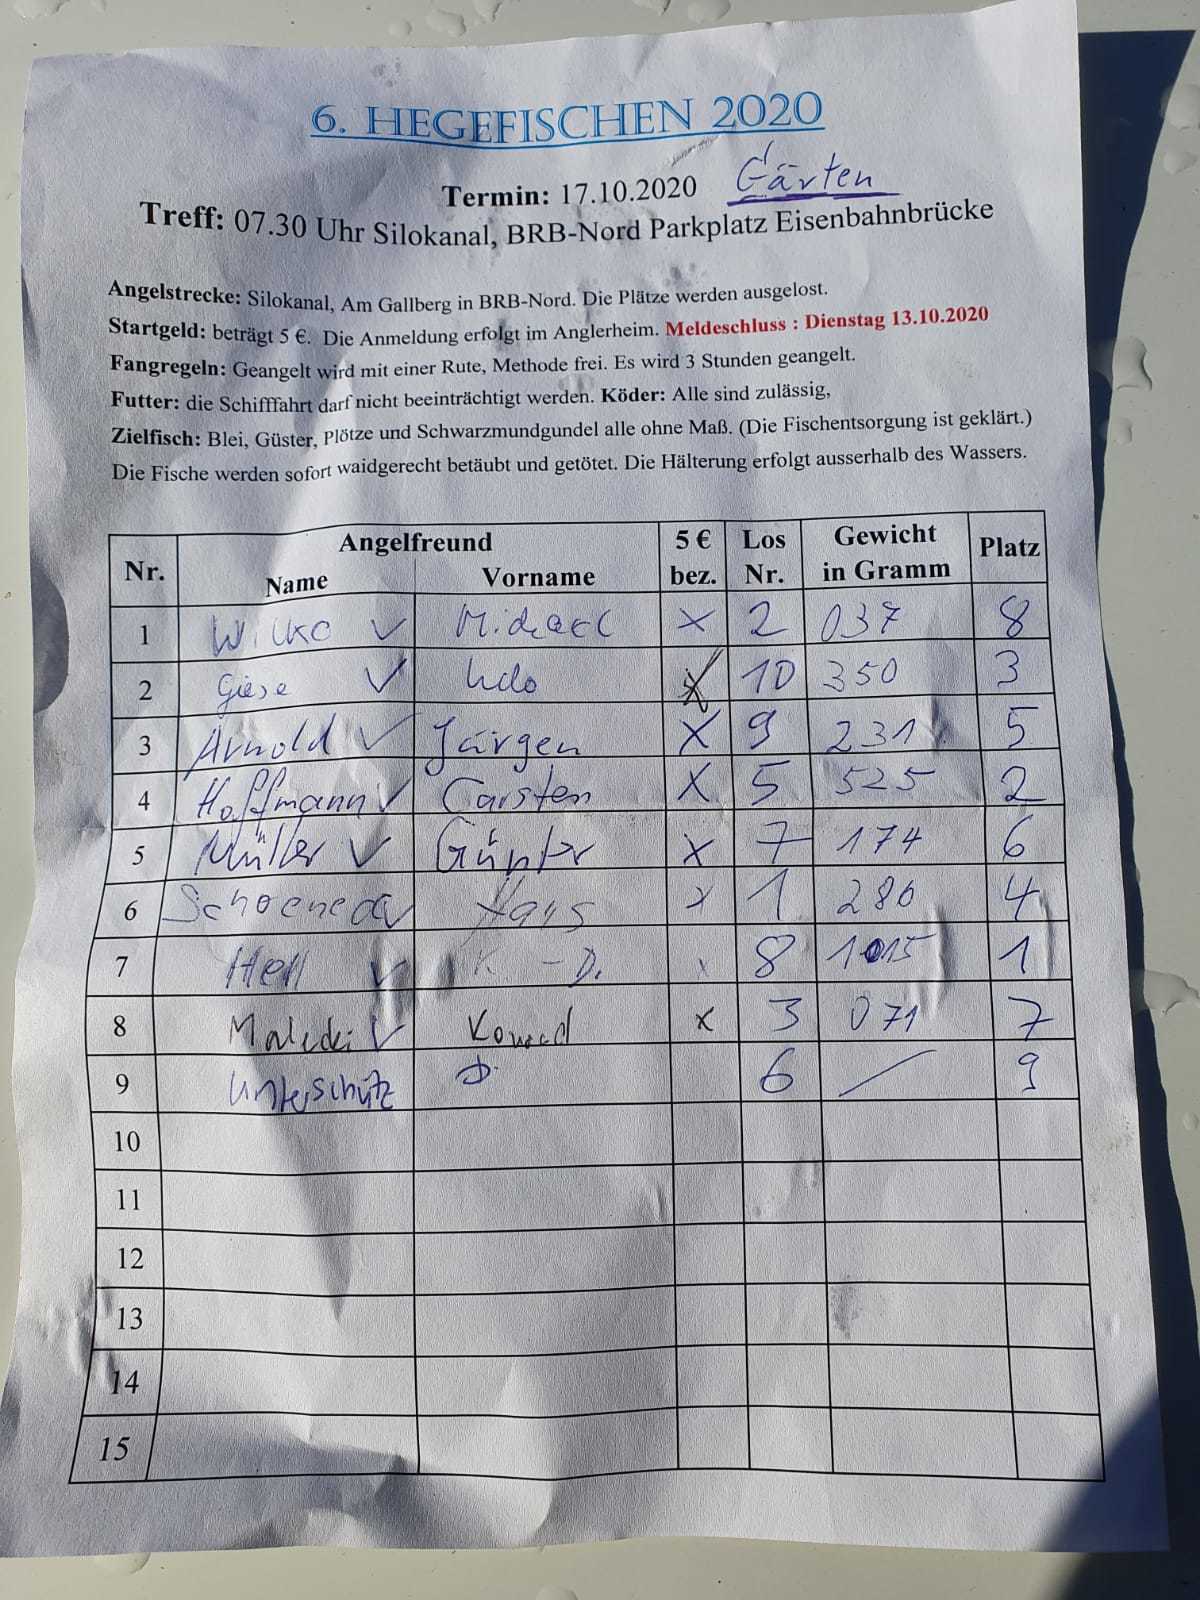 6. HEGEFISCHEN 2020
Termin: 17.10.2020 Gärten
Treff: 07.30 Uhr Silokanal, BRB-Nord Parkplatz Eisenbahnbrücke
Angelstrecke: Silokanal, Am Gallberg in BRB-Nord. Die Plätze werden ausgelost.
Startgeld: beträgt 5 €. Die Anmeldung erfolgt im Anglerheim. Meldeschluss : Dienstag 13.10.2020
Fangregeln: Geangelt wird mit einer Rute, Methode frei. Es wird 3 Stunden geangelt.
Futter: die Schifffahrt darf nicht beeinträchtigt werden. Köder: Alle sind zulässig,
Zielfisch: Blei, Güster, Plötze und Schwarzmundgundel alle ohne Maß. (Die Fischentsorgung ist geklärt.)
Die Fische werden sofort waidgerecht betäubt und getötet. Die Hälterung erfolgt ausserhalb des Wassers.
Nr. Angelfreund 5 € Los Gewicht Platz
Name Vorname bez. Nr. in Gramm
1 Wilke ✓ Michael x 2 037 8
2 Giese ✓ Udo x 10 350 3
3 Arnold ✓ Jürgen x 9 231 5
4 Hoffmann ✓ Carsten x 5 525 2
5 Müller ✓ Günter x 7 174 6
6 ✓ Hans x 1 280 4
7 Hell ✓ K. - D. x 8 1015 1
8 Malecki ✓ Konrad x 3 071 7
9 Unterschütz D. 6 / 9
10
11
12
13
14
15